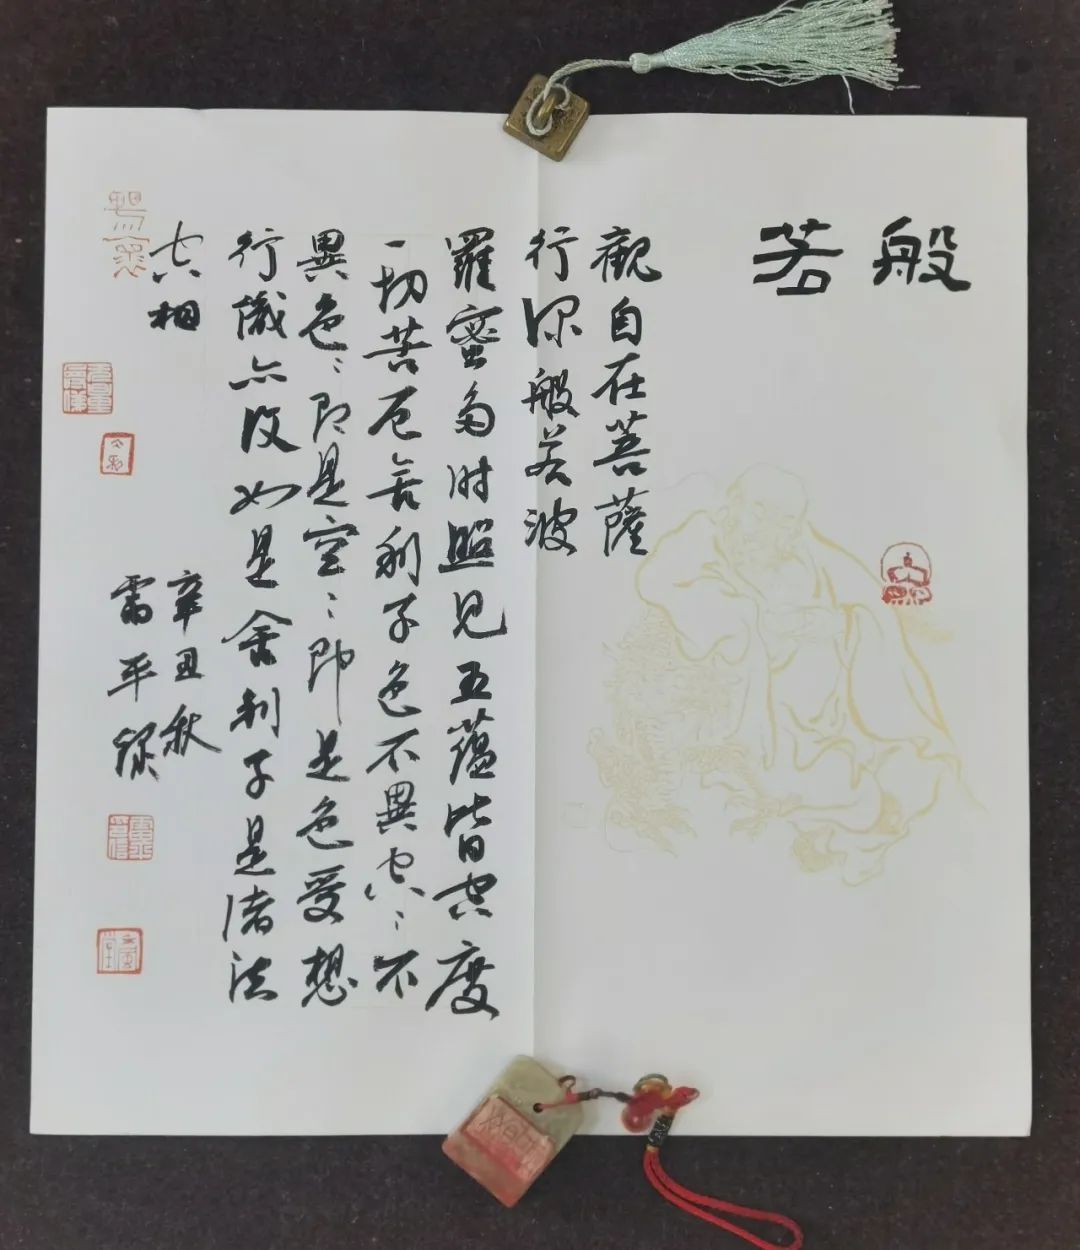 般若
觀自在菩薩
行深般若波
羅蜜多時照見五蘊皆空度
一切苦厄舍利子色不異空〻不
異色〻即是空〻即是色受想
行識亦復如是舍利子是諸法
空相
辛丑秋
雷平錄